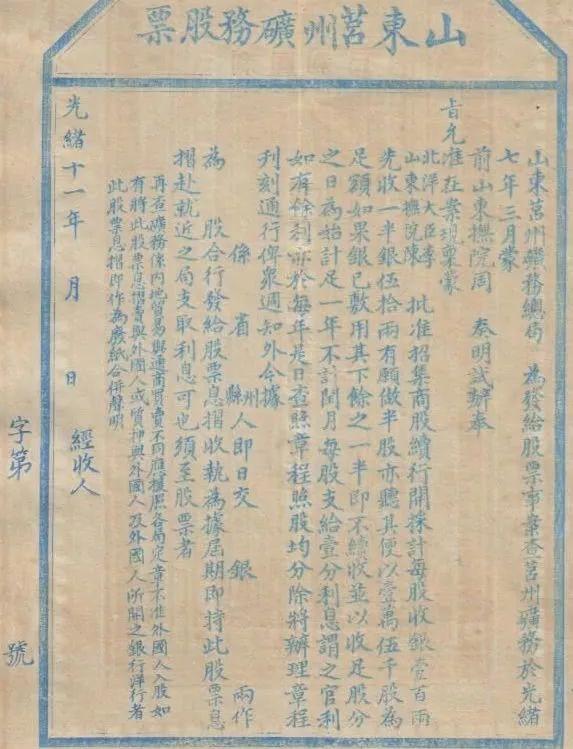 山東莒州礦務股票
山東莒州礦務總局 為發給股票事案查莒州礦務於光緒
七年三月蒙
前山東撫院周 奏明試辦奉
旨允准在案現稟蒙
北洋大臣李
山東撫院陳 批准招集商股續行開採計每股收銀壹百兩
先收一半銀伍拾兩有願做半股亦聽其便以壹萬伍千股為
足額如果銀已敷用其下餘之一半即不續收並以收足股分
之日為始計足一年不計閏月每股支給壹分利息謂之官利
如有餘利亦於每年是日查照章程照股均分除將辦理章程
刊刻通行俾衆週知外今據
係 省 州縣人即日交 銀 兩作
為 股合行發給股票息摺收執為據屆期即持此股票息
摺赴就近之局支取利息可也須至股票者
再者礦務係內地貿易與通商買賣不同應援照各局定章不准外國人入股如
有將此股票息摺賣與外國人或質押與外國人及外國人所開之銀行洋行者
此股票息摺即作為廢紙合併聲明
光緒十一年 月 日 經收人
字第 號